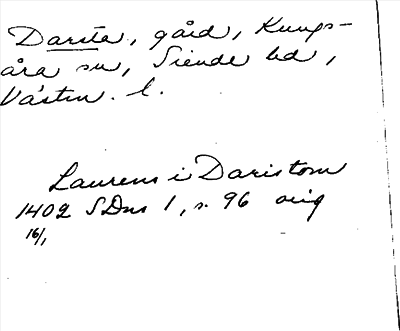 Darsta, gård, Kungs-
åra sn, Siende hd,
Västm. l.
Laurens i Daristom
1402 SDns 1, s. 96 orig
16/1